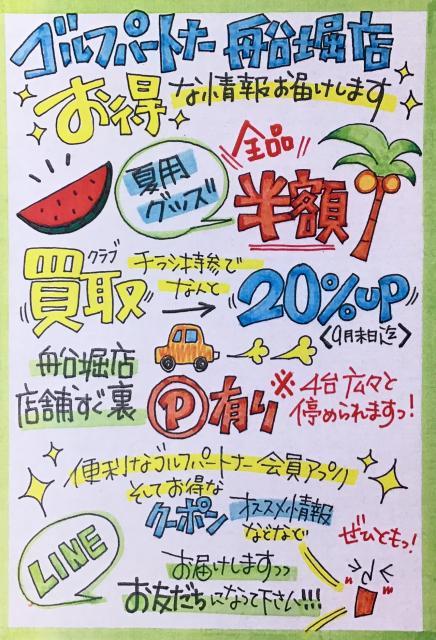 ゴルフパートナー 船堀店
お得な情報お届けします
夏用
グッズ
全品
半額
クラブ
買取
チラシ持参で
なんと
→ 20%UP
〈9月末日迄〉
船堀店
店舗すぐ裏
Ⓟ有り
※4台広々と
停められますっ!
便利なゴルフパートナー会員アプリ
そしてお得な
クーポン
オススメ情報
などなど
ぜひともっ!
LINE
お届けしますっっ
お友だちになって下さい!!!